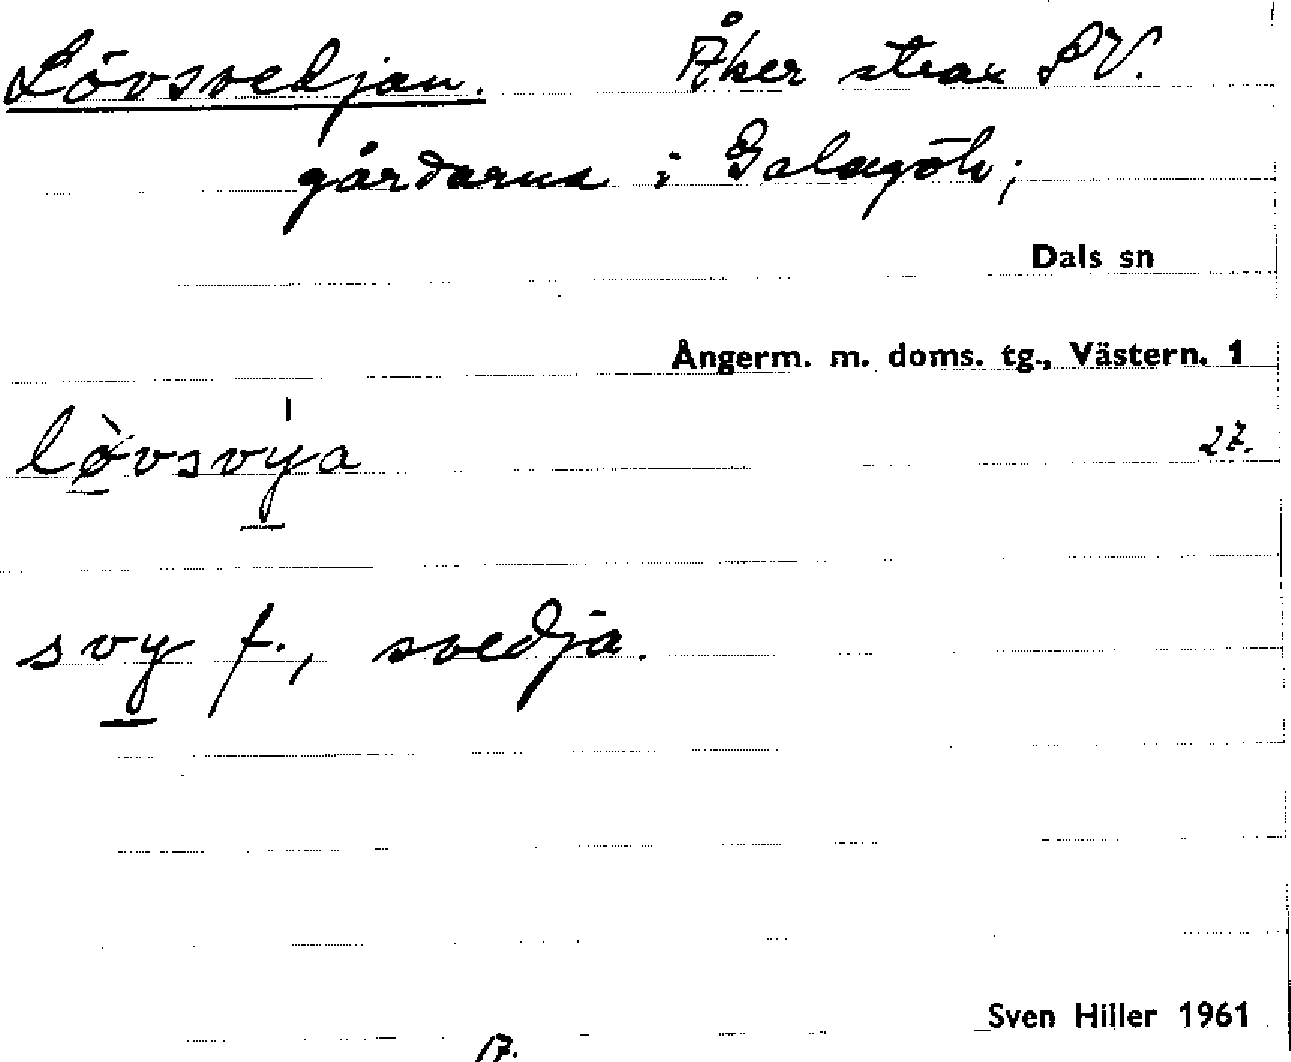 Lövsvedjan. Åker strax SV.
gårdarna i
Dals sn
Ångerm. m. doms. tg., Västern. 1
lø̀vsvy̍a 27.
svy f., svedja.
Sven Hiller 1961
17.